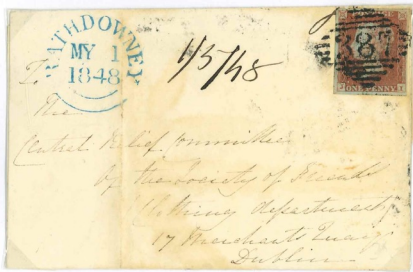 RATHDOWNEY
MY 1
1848
1/5/48
387
ONE PENNY
To
The
Central Relief Committee
of the Society of Friends
Clothing department
17 Merchants Quay
Dublin